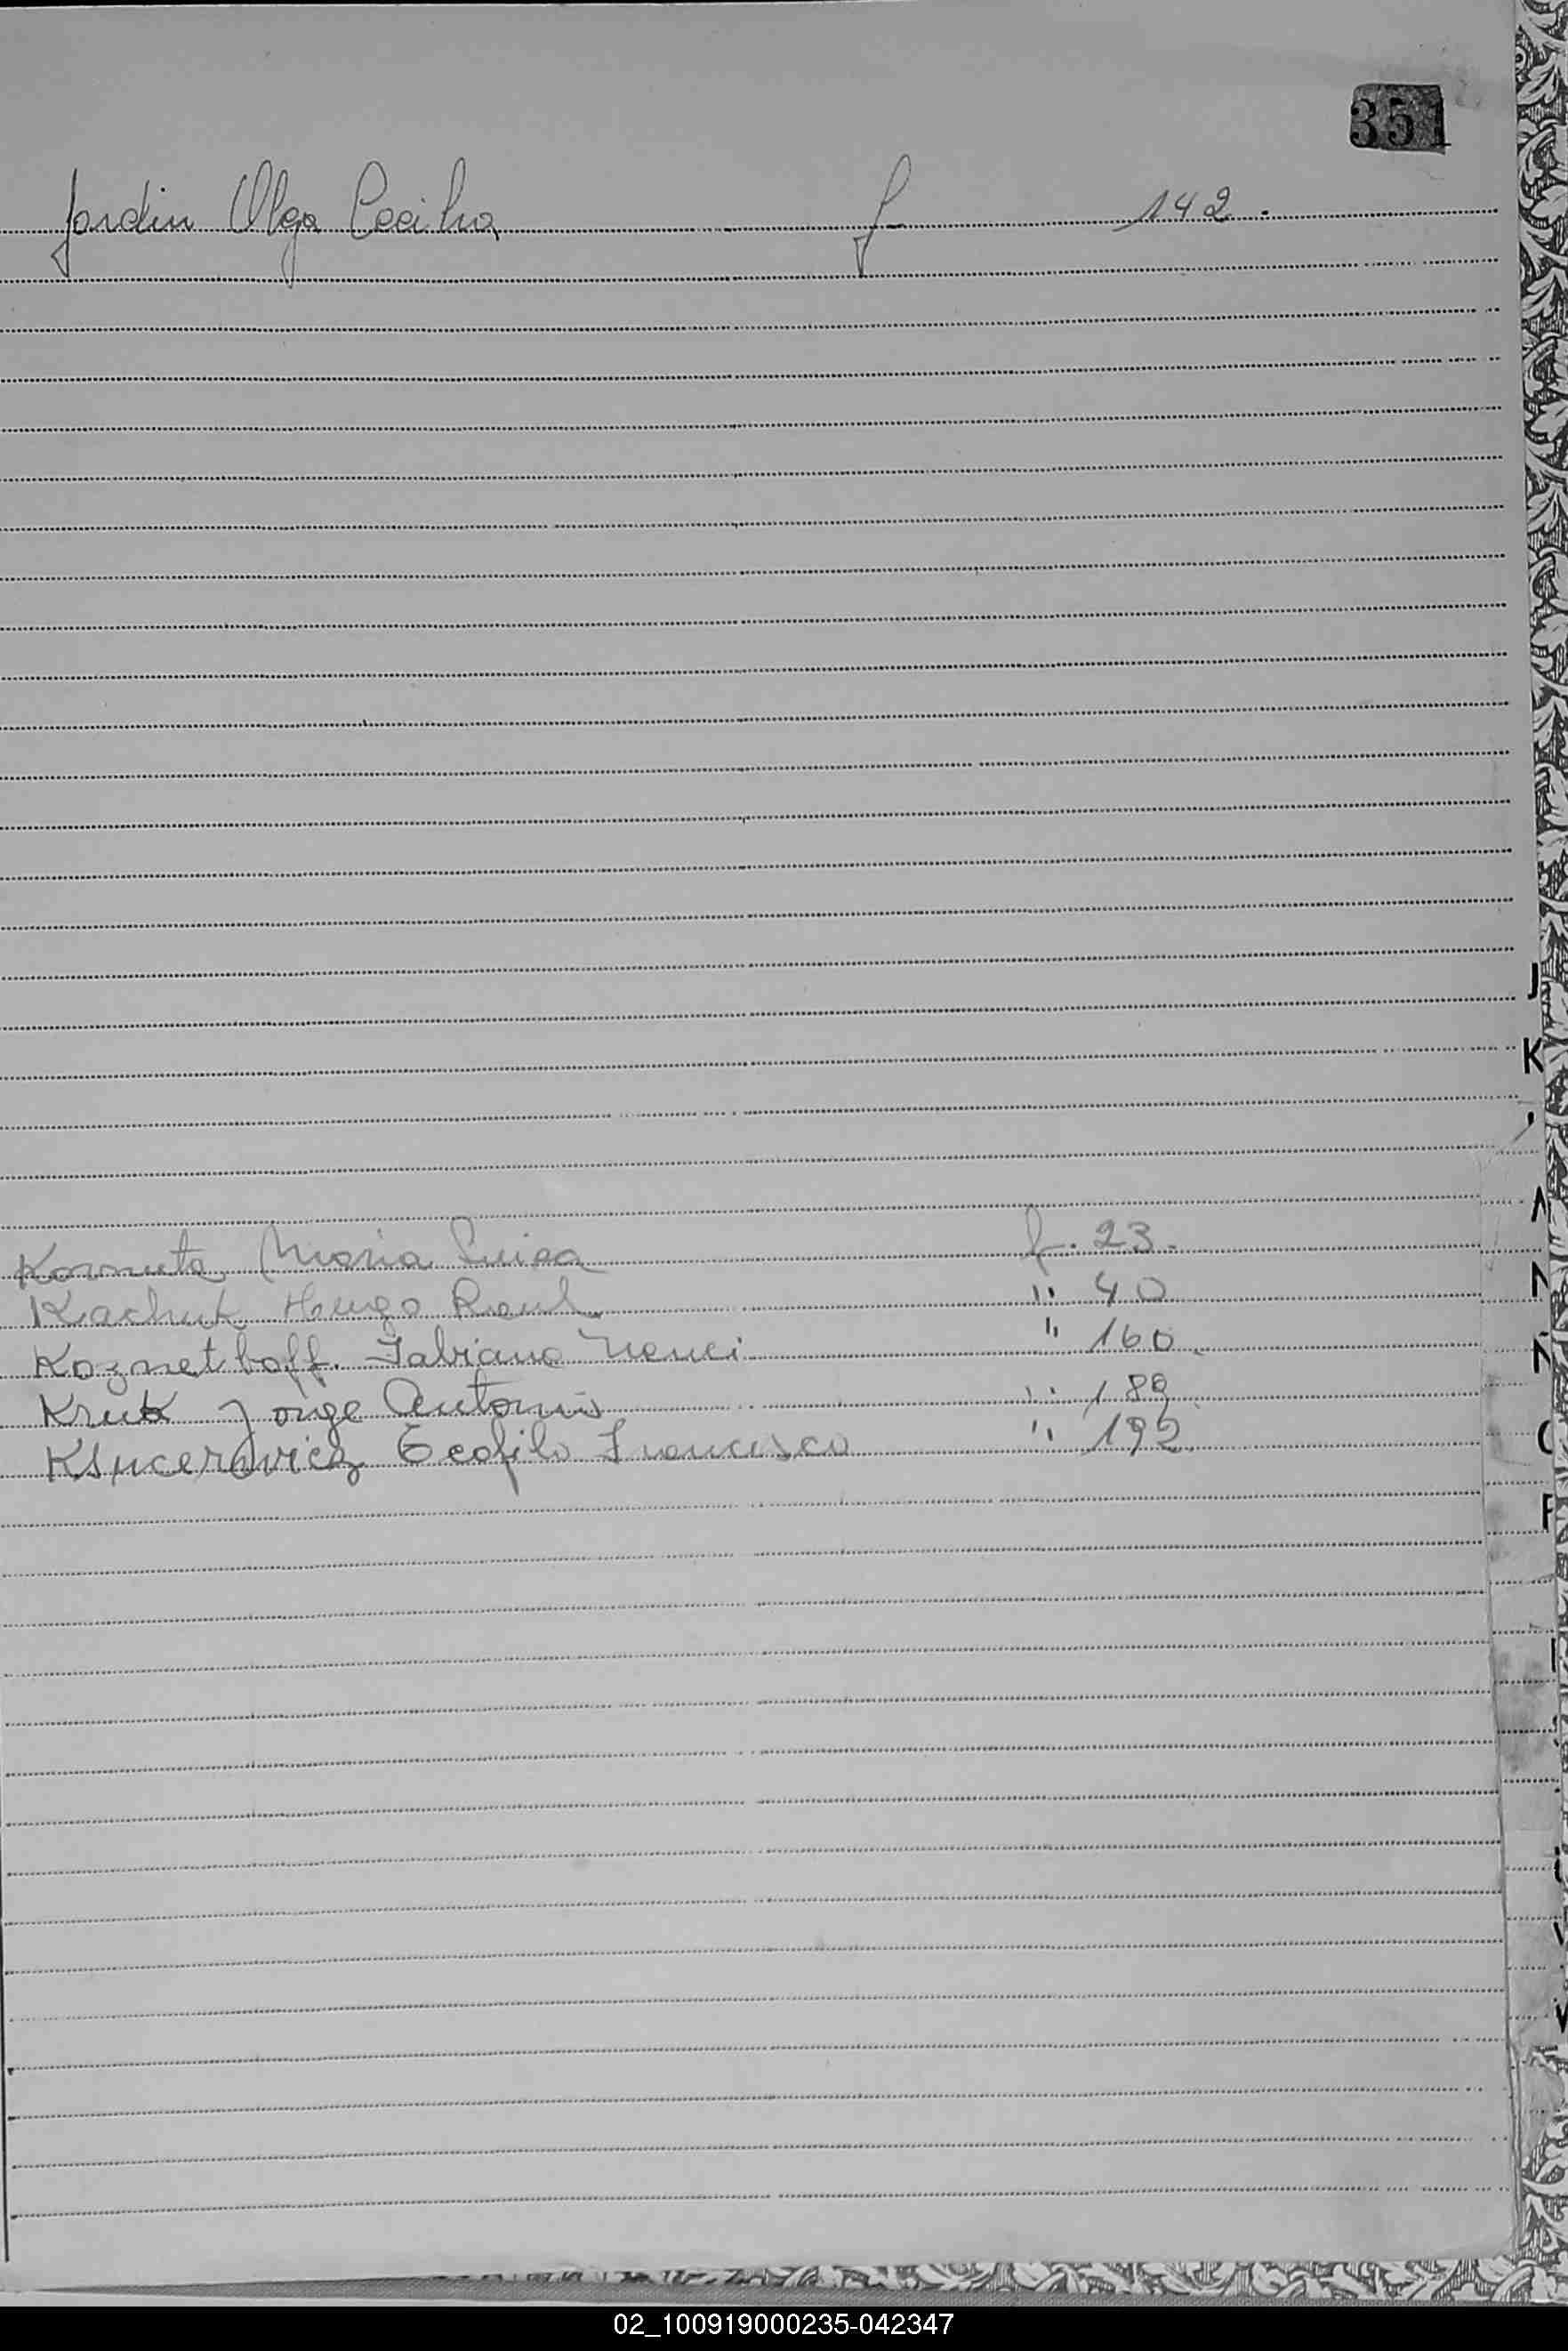 351
Jordin Olga Cecilia f 142.
J
K
Kornuta Maria Luisa f. 23.
Kachuk Hugo Raul " 40
Koznethoff. Fabiana Nenci " 160.
Kruk Jorge Antonio " 189
Ksucerawicz Teofilo Francisco " 192
02_100919000235-042347